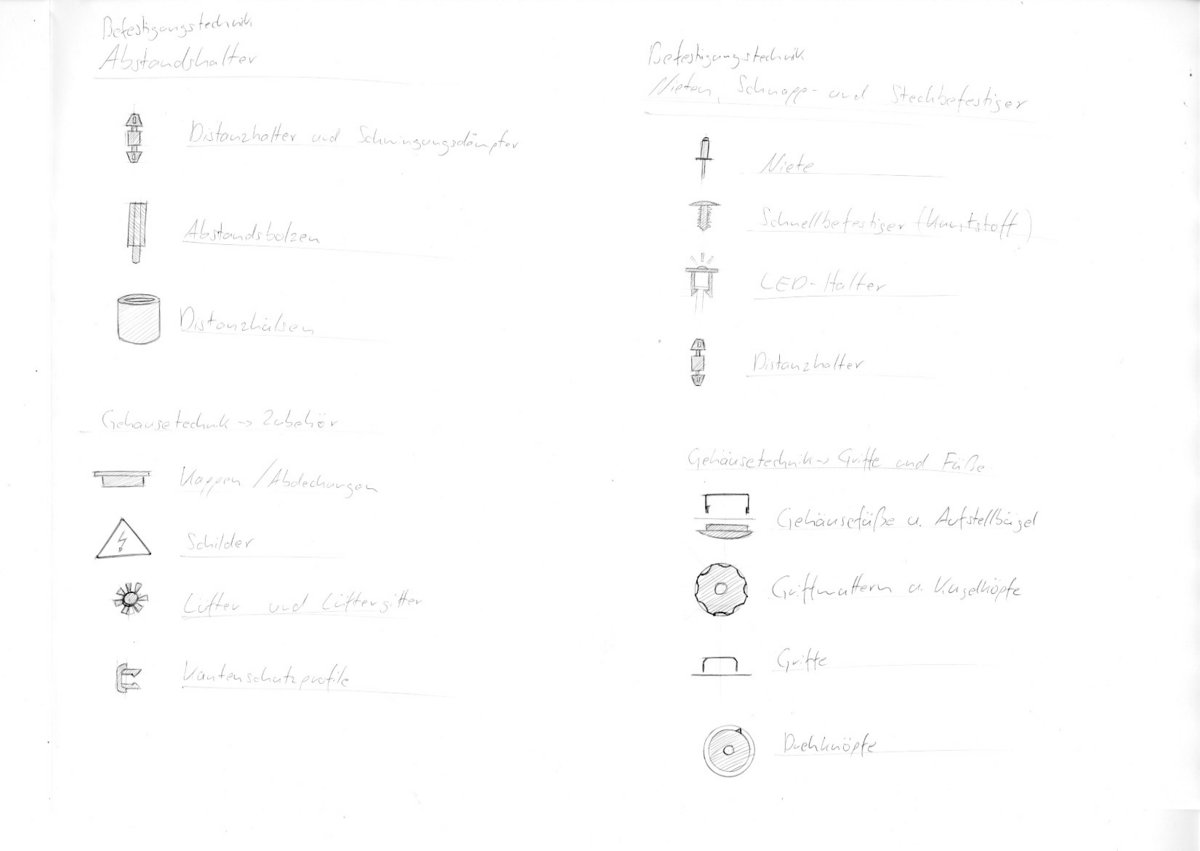 Befestigungstechnik
Abstandshalter
Distanzhalter und Schwingungsdämpfer
Abstandsbolzen
Distanzhülsen
Gehäusetechnik -> Zubehör
Kappen / Abdeckungen
Schilder
Lüfter und Lüftergitter
Kantenschutzprofile
Befestigungstechnik
Nieten, Schnapp- und Steckbefestiger
Niete
Schnellbefestiger (Kunststoff)
LED-Halter
Distanzhalter
Gehäusetechnik -> Griffe und Füße
Gehäusefüße u. Aufstellbügel
Griffmuttern u. Kugelköpfe
Griffe
Drehknöpfe